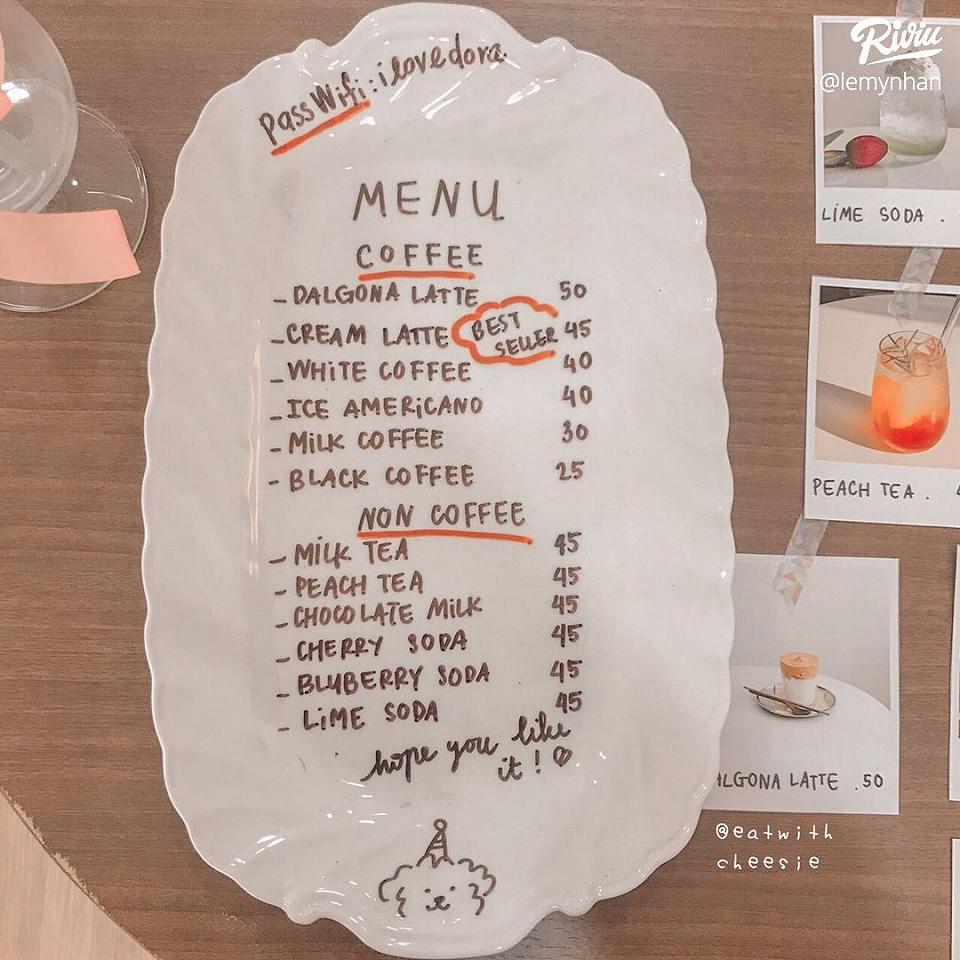 Pass Wifi: ilovedora
MENU
COFFEE
- DALGONA LATTE 50
- CREAM LATTE BEST SELLER 45
- WHITE COFFEE 40
- ICE AMERICANO 40
- MILK COFFEE 30
- BLACK COFFEE 25
NON COFFEE
- MILK TEA 45
- PEACH TEA 45
- CHOCOLATE MILK 45
- CHERRY SODA 45
- BLUBERRY SODA 45
- LIME SODA 45
hope you like
it! ♡
Riviu
@lemynhan
LIME SODA .
PEACH TEA .
ALGONA LATTE .50
@eatwith
cheesie